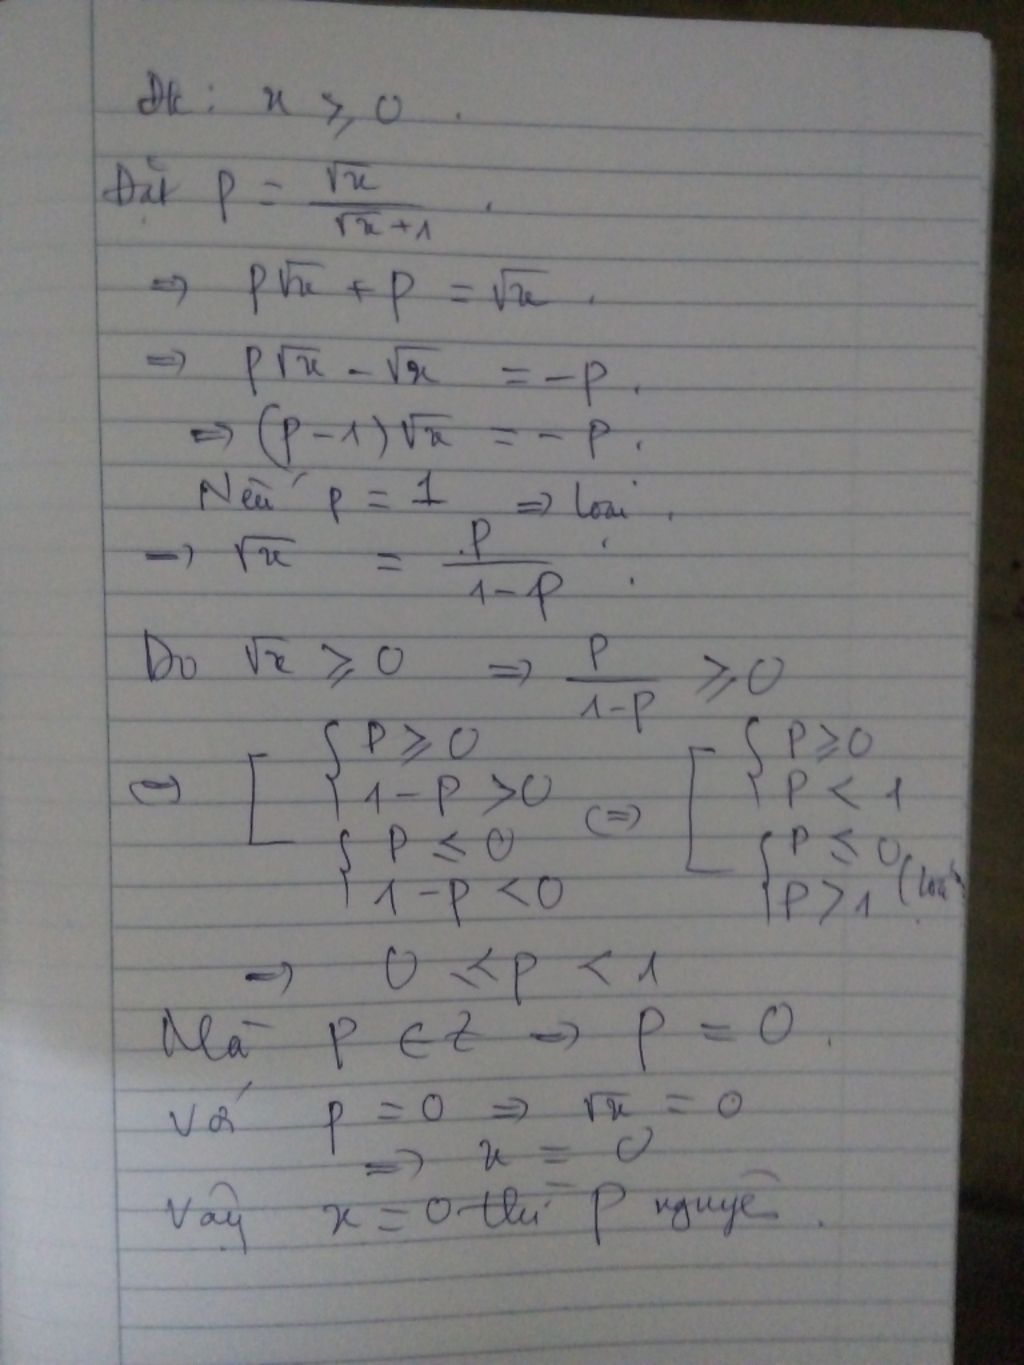 Đk: x ≥ 0.
Đặt P = √x / (√x + 1).
⇒ P√x + P = √x.
⇒ P√x - √x = -P.
⇒ (P - 1)√x = -P.
Nếu P = 1 ⇒ loại.
⇒ √x = P / (1 - P).
Do √x ≥ 0 ⇒ P / (1 - P) ≥ 0
⇔ [ { P ≥ 0, 1 - P > 0 ; { P ≤ 0, 1 - P < 0 ⇔ [ { P ≥ 0, P < 1 ; { P ≤ 0, P > 1 (loại)
⇒ 0 ≤ P < 1
Mà P ∈ Z ⇒ P = 0.
Với P = 0 ⇒ √x = 0
⇒ x = 0
Vậy x = 0 thì P nguyên.